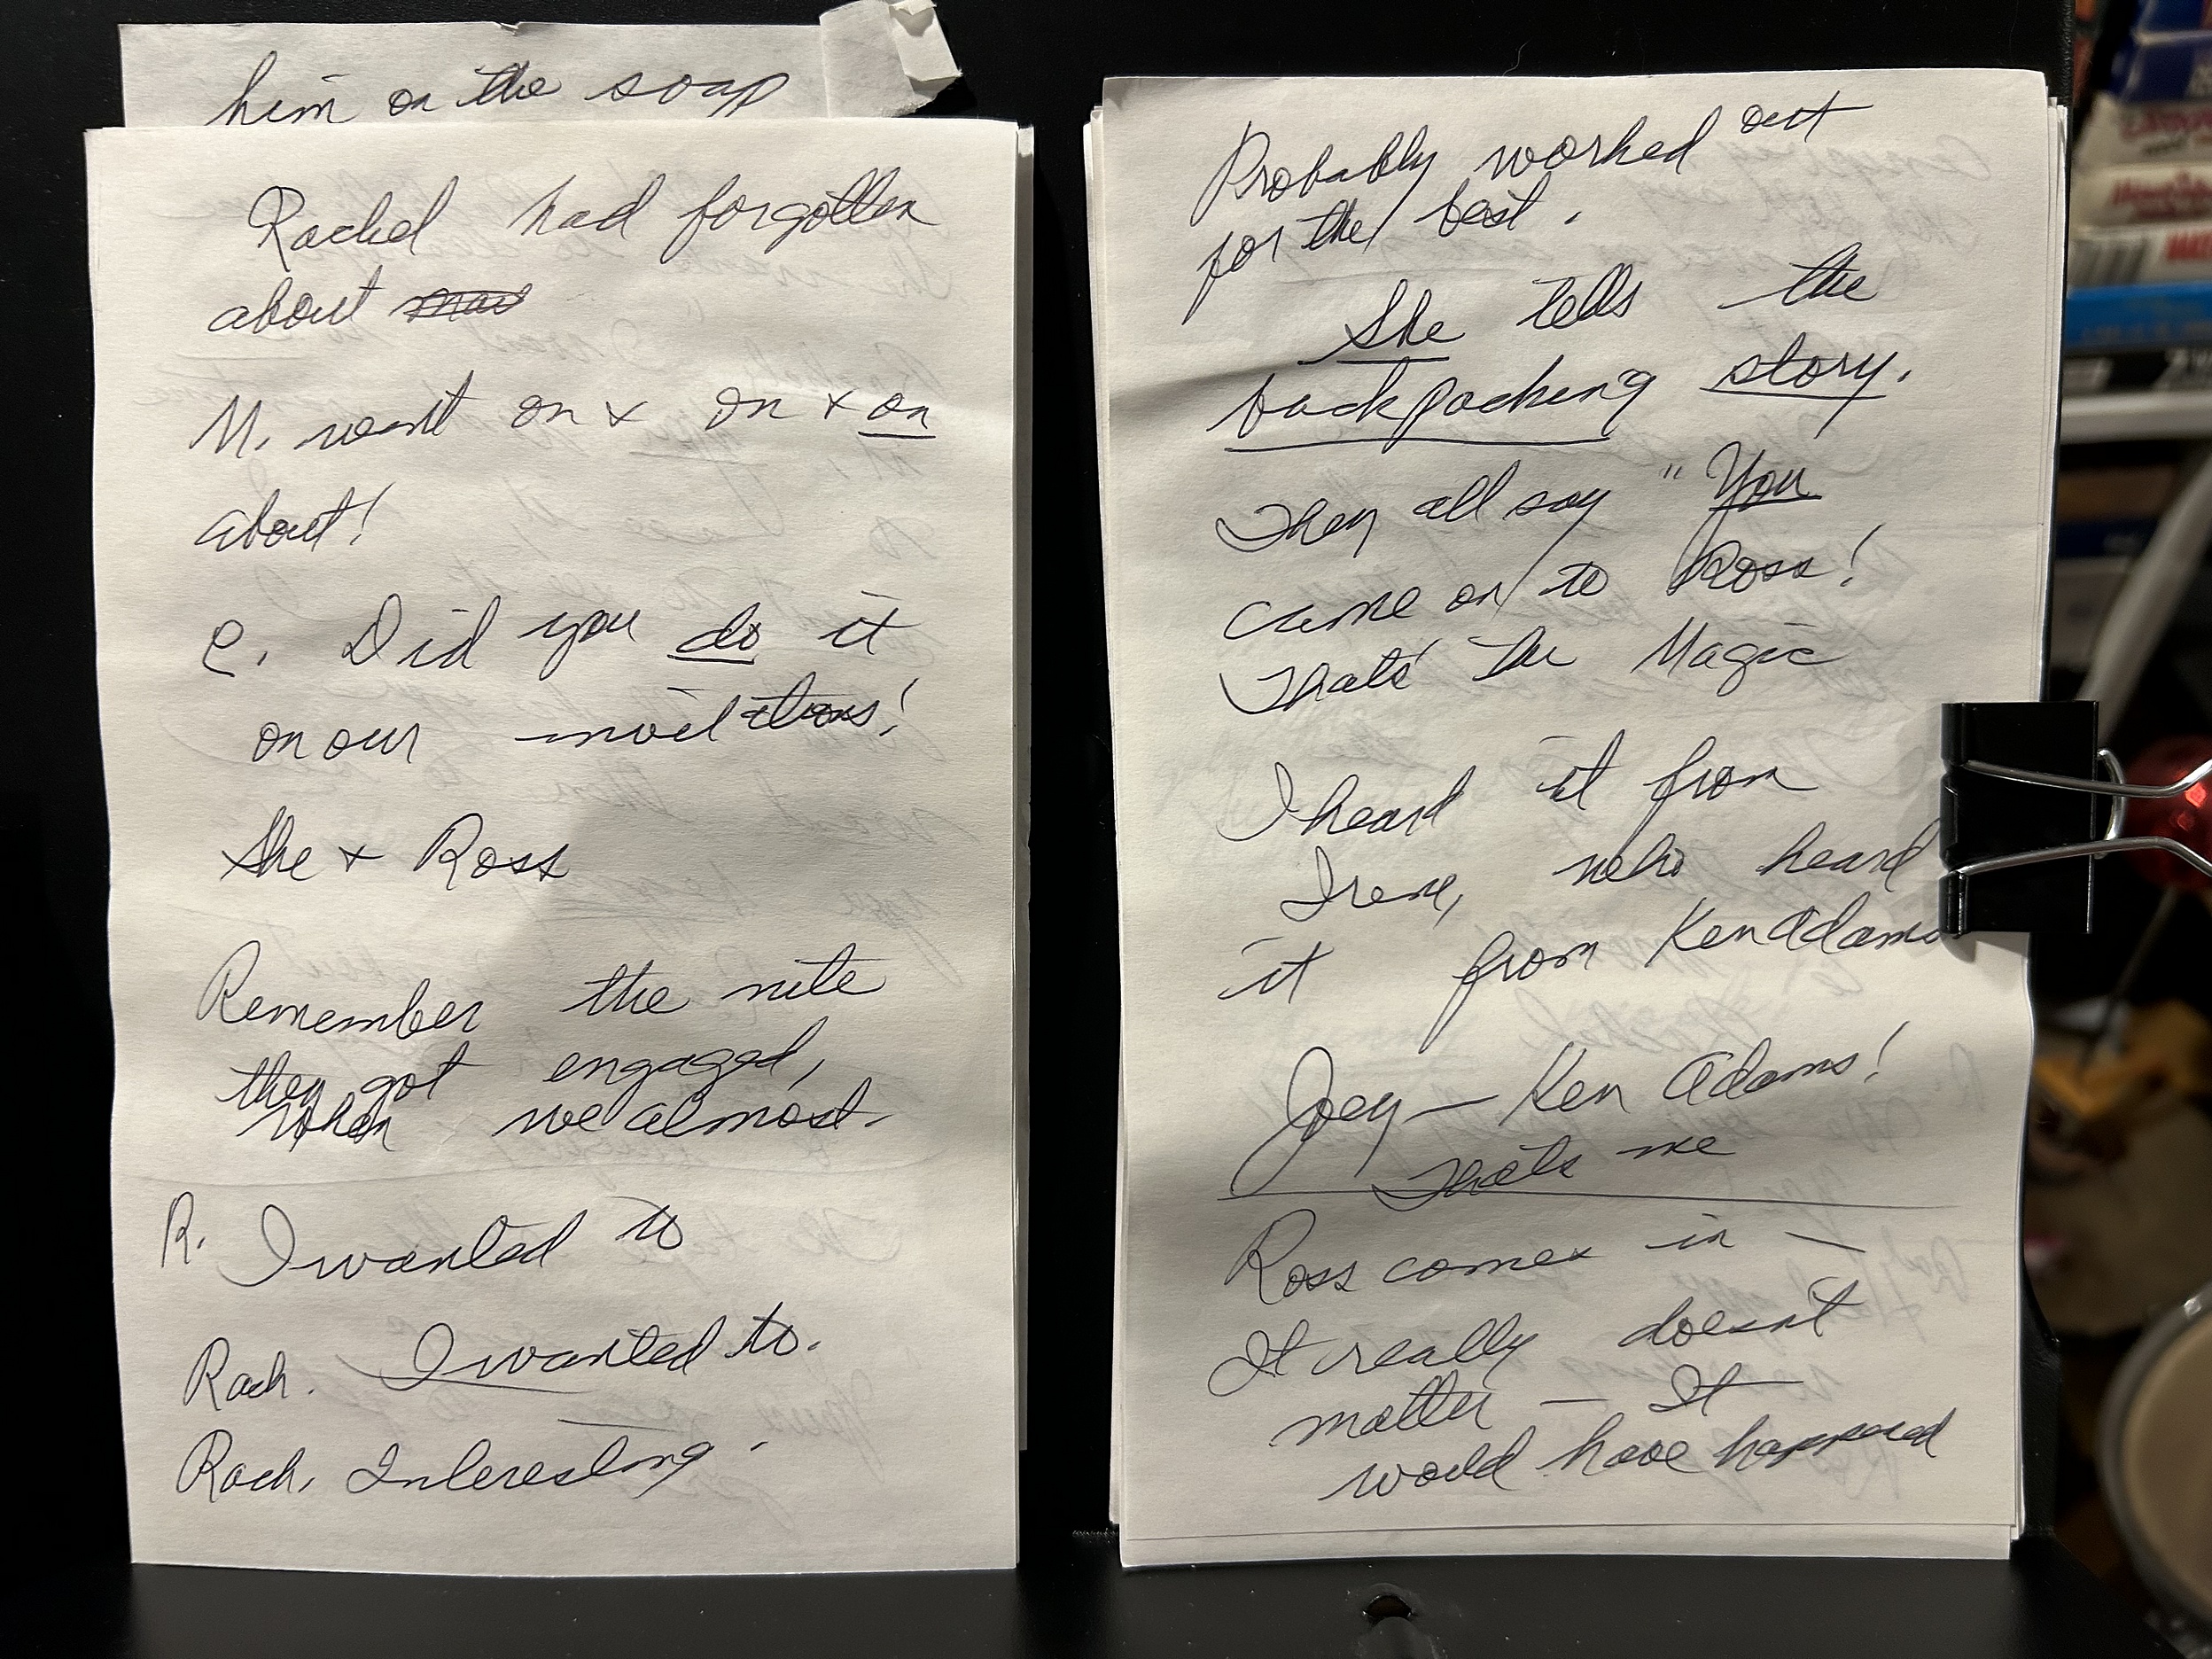 him on the soap
Rachel had forgotten
about
M. went on + on + on
about!
C. Did you do it
on our invitations!
She + Ross
Remember the nite
they got engaged,
when we almost.
R. I wanted to
Rach. I wanted to.
Rach. Interesting.
Probably worked out
for the best.
She tells the
backpacking story.
They all say "You
came on to Ross!
That's the Magic
I heard it from
Irene, who heard
it from Ken Adams
Joey — Ken Adams!
That's me
Ross comes in —
It really doesn't
matter — It
would have happened